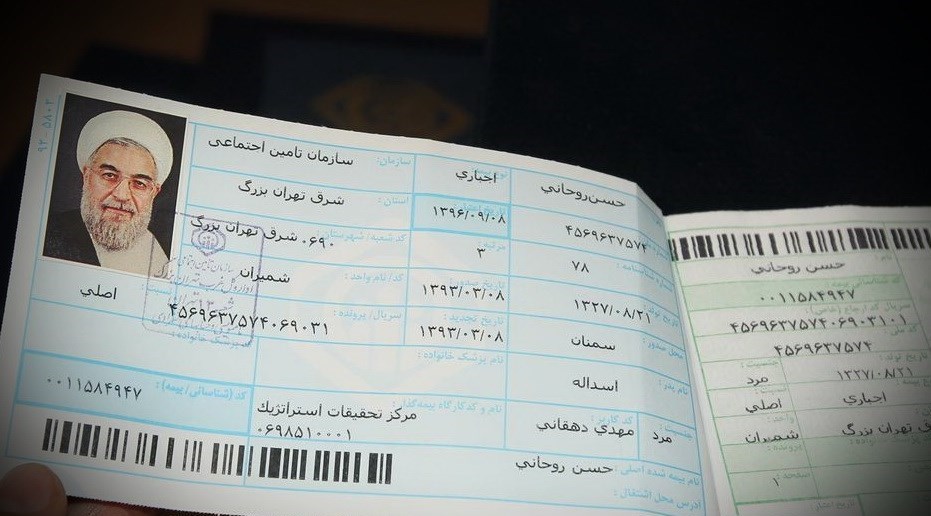 ۹۴ ۵۸۰۲
سازمان: سازمان تامین اجتماعی
استان: شرق تهران بزرگ
کد شعبه/ شهرستان: ۰۶۹۰ شرق تهران بزرگ
کد/ نام واحد: شمیران
سریال/ پرونده: ۴۵۶۹۶۳۷۵۷۴۰۶۹۰۳۱
اصلي
اجباري
۱۳۹۶/۰۹/۰۸
مرتبه: ۳
۱۳۹۳/۰۳/۰۸
تاریخ تجدید: ۱۳۹۳/۰۳/۰۸
نام پزشک خانواده:
حسن روحاني
۴۵۶۹۶۳۷۵۷۴
۷۸
تاریخ تولد: ۱۳۲۷/۰۸/۲۱
محل صدور: سمنان
نام پدر: اسداله
جنسیت: مرد
کد کاربر: مهدي دهقاني
نام و کد کارگاه بیمه‌گذار: مرکز تحقیقات استراتژیك
۰۶۹۸۵۱۰۰۰۱
کد (شناسائی/ بیمه): ۰۰۱۱۵۸۴۹۴۷
نام بیمه شده اصلی: حسن روحاني
آدرس محل اشتغال:
نام: حسن روحاني
۰۰۱۱۵۸۴۹۴۷
۴۵۶۹۶۳۷۵۷۴۰۶۹۰۳۱۰۱
کد ملی: ۴۵۶۹۶۳۷۵۷۴
تاریخ تولد: ۱۳۲۷/۰۸/۲۱
جنسیت: مرد
اجباري
اصلي
تهران بزرگ
واحد: شمیران
صفحه: ۱